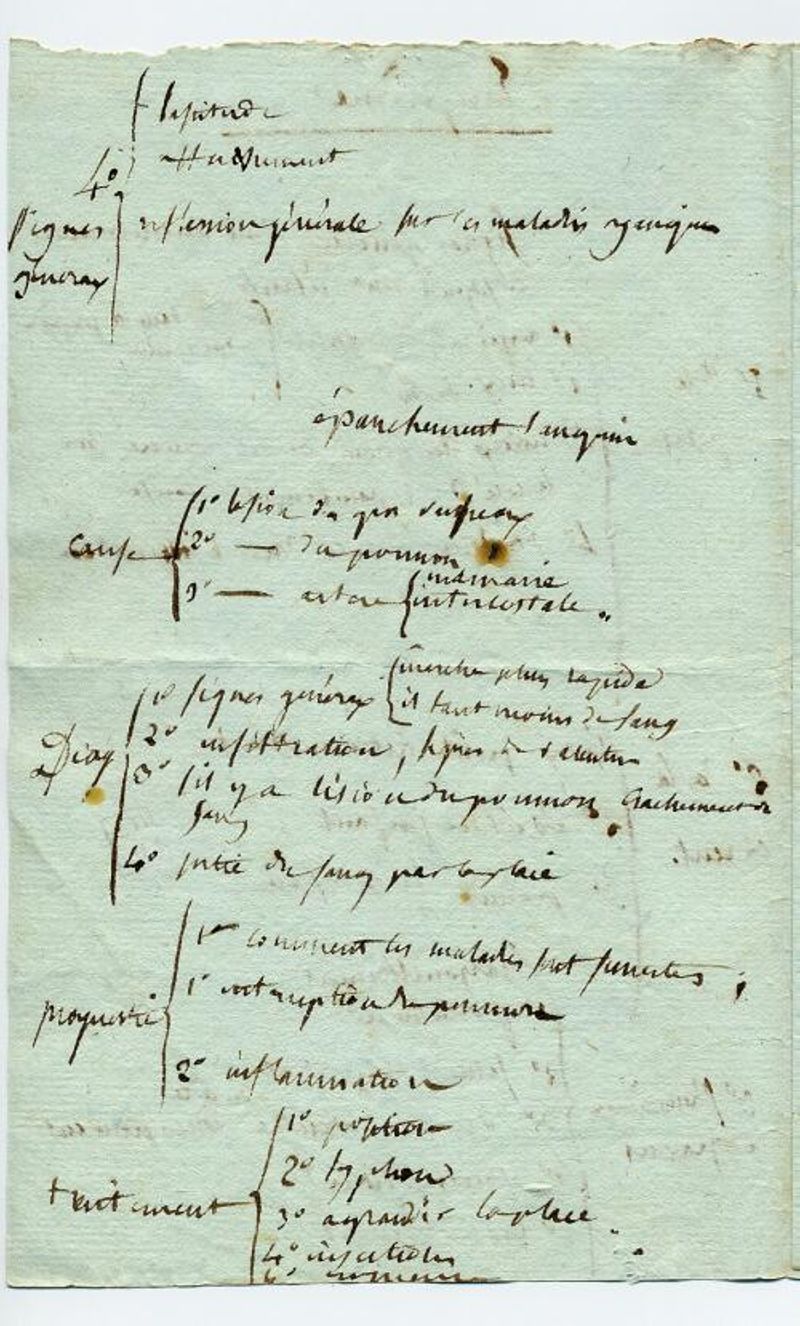 lassitude
4°
Signes
généraux
réflexion générale sur les maladies organiques
épanchement sanguin
cause
1° lésion du gros vaisseaux
2° — du poumon
3° — artere mammaire
intercostale
Diag
1° signes généraux
marche plus rapide
il faut moins de sang
2° infiltration, signes de valentin
3° s'il y a lésion du poumon crachement de
sang
4° sortie du sang par la plaie
prognostic
1° comment les maladies sont funestes
1° du poumon
2° inflammation
traitement
1° position
2° syphon
3° agrandir la plaie
4° injections